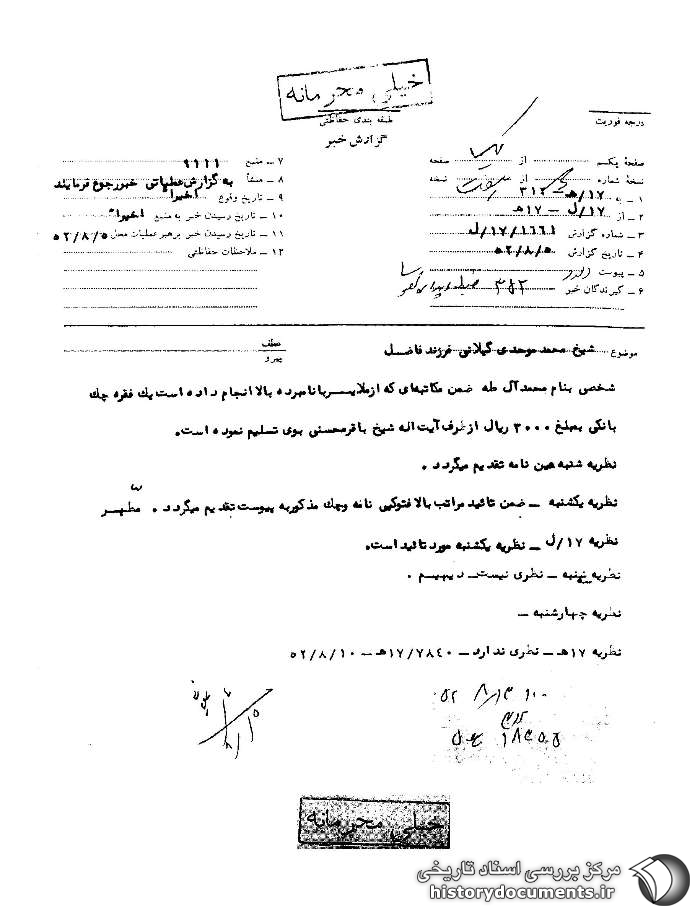 خیلی محرمانه
طبقه بندی حفاظتی
درجه فوریت
گزارش خبر
صفحهٔ یکم از صفحه
نسخهٔ شماره از نسخه
۱ ـ به ۱۷/هـ ۳۱۲
۲ ـ از ۱۷/ل ـ ۱۷هـ
۳ ـ شماره گزارش ۱۷/۱۶۶۱/ل
۴ ـ تاریخ گزارش ۵۲/۸/۵
۵ ـ پیوست دارد
۶ ـ گیرندگان خبر
۷ ـ منبع ۹۱۱۱
۸ ـ منشأ به گزارش عملیاتی خبر رجوع فرمایند
۹ ـ تاریخ وقوع اخیرا"
۱۰ ـ تاریخ رسیدن خبر به منبع اخیرا"
۱۱ ـ تاریخ رسیدن خبر برهبر عملیات محل ۵۲/۸/۵
۱۲ ـ ملاحظات حفاظتی
موضوع شیخ محمد موحدی گیلانی فرزند فاضل
عطف
پیرو
شخصی بنام محمدآل طه ضمن مکاتبهای که ازملایسر بانامبرده بالا انجام داده است یك فقره چك
بانکی بمبلغ ۳۰۰۰ ریال ازطرف آیت اله شیخ باقرمحسنی بوی تسلیم نموده است.
نظریه شنبه عین نامه تقدیم میگردد .
نظریه یکشنبه ـ ضمن تائید مراتب بالا فتوکپی نامه وچك مذکوربه پیوست تقدیم میگردد . مطهر
نظریه ۱۷/ل ـ نظریه یکشنبه مورد تائید است.
نظریه سه‌شنبه ـ نظری نیست ـ دیهیم .
نظریه چهارشنبه ـ
نظریه ۱۷هـ ـ نظری ندارد ـ ۱۷/۷۸۴۰هـ ـ ۵۲/۸/۱۰
خیلی محرمانه
مرکز بررسی اسناد تاریخی
historydocuments.ir